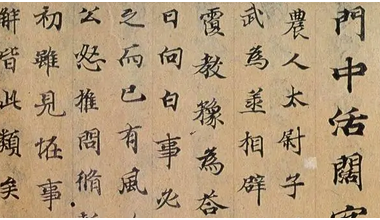 門中活闊
農人太尉子
武為丞相辟
覆教豫為荅
曰向白事必
之而已有風
公怒推問脩
初雖見怪事
解皆此類矣